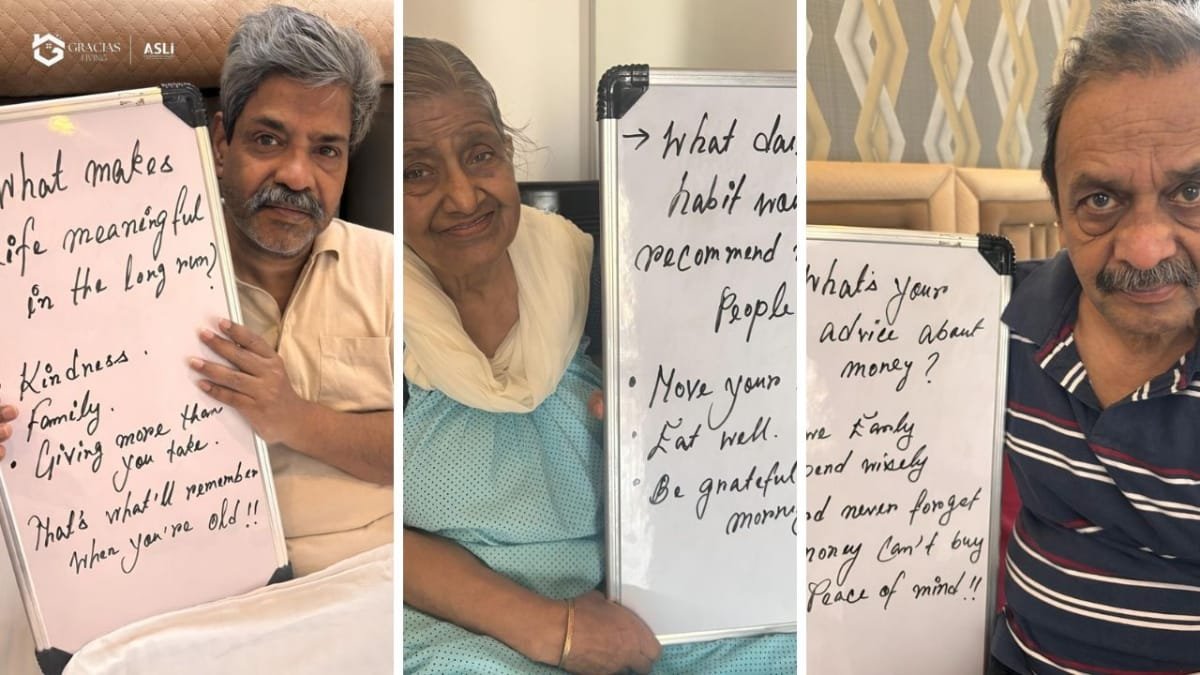 GRACIAS
LIVING
ASLI
What makes
life meaningful
in the long run?
• Kindness.
Family.
• Giving more than
you take.
That's what'll remember
when you're old!!
→ What
habit
recommend
People
• Move your
• Eat well.
• Be grateful
What's your
advice about
money?
Early
wisely
never forget
money can't buy
Peace of mind!!